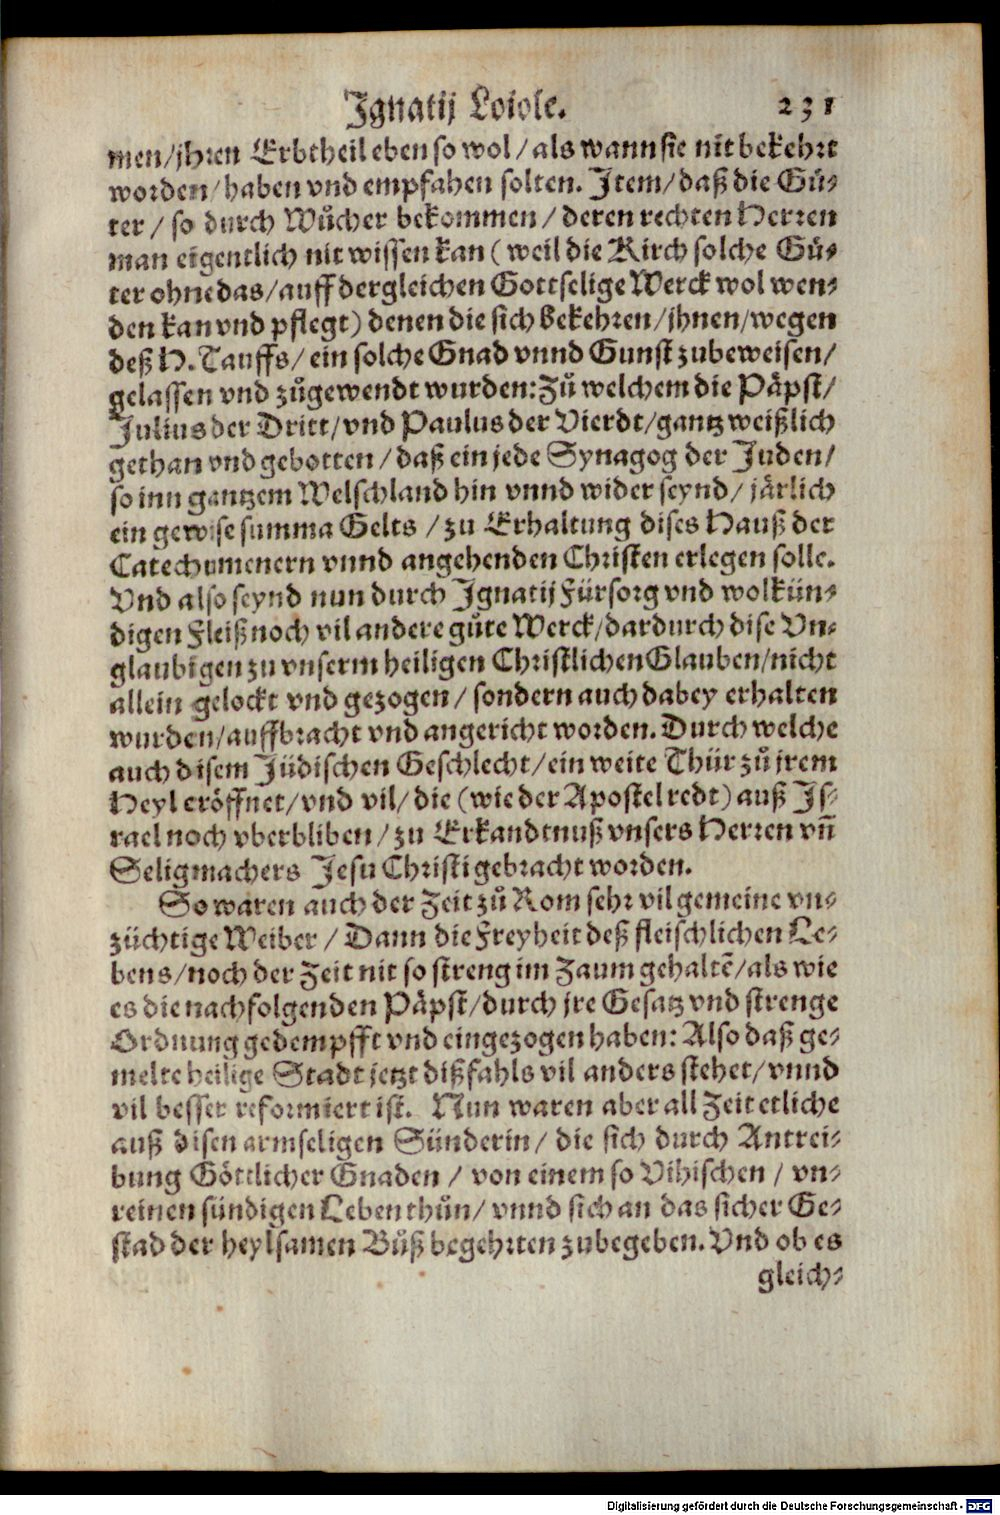 Ignatij Loiole. 231
men/jhren Erbtheil eben so wol/als wann sie nit bekehrt
worden/haben vnd empfahen solten. Item/daß die Gü-
ter/so durch Wůcher bekommen/deren rechten Herren
man eigentlich nit wissen kan (weil die Kirch solche Gü-
ter ohne das/auff dergleichen Gottselige Werck wol wen-
den kan vnd pflegt) denen die sich bekehren/jhnen/wegen
deß H. Tauffs/ein solche Gnad vnnd Gunst zubeweisen/
gelassen vnd zůgewendt wurden: Zů welchem die Päpst/
Julius der Dritt/vnd Paulus der Vierdt/gantz weißlich
gethan vnd gebotten/daß ein jede Synagog der Juden/
so inn gantzem Welschland hin vnnd wider seynd/järlich
ein gewise summa Gelts/zu Erhaltung dises Hauß der
Catechumenern vnnd angehenden Christen erlegen solle.
Vnd also seynd nun durch Ignatij Fürsorg vnd wolkün-
digen Fleiß noch vil andere gůte Werck/dardurch dise Vn-
glaubigen zu vnserm heiligen Christlichen Glauben/nicht
allein gelockt vnd gezogen/sondern auch dabey erhalten
wurden/auffbracht vnd angericht worden. Durch welche
auch disem Jüdischen Geschlecht/ein weite Thür zů jrem
Heyl eröffnet/vnd vil/die (wie der Apostel redt) auß Is-
rael noch vberbliben/zu Erkandtnuß vnsers Herren vñ
Seligmachers Jesu Christi gebracht worden.
So waren auch der Zeit zů Rom sehr vil gemeine vn-
züchtige Weiber/Dann die Freyheit deß fleischlichen Le-
bens/noch der Zeit nit so streng im Zaum gehaltẽ/als wie
es die nachfolgenden Päpst/durch jre Gesatz vnd strenge
Ordnung gedempfft vnd eingezogen haben: Also daß ge-
melte heilige Stadt jetzt dißfahls vil anders stehet/vnnd
vil besser reformiert ist. Nun waren aber all Zeit etliche
auß disen armseligen Sünderin/die sich durch Antrei-
bung Göttlicher Gnaden/von einem so Vihischen/vn-
reinen sündigen Leben thůn/vnnd sich an das sicher Ge-
stad der heylsamen Bůß begehrten zubegeben. Vnd ob es
gleich-
Digitalisierung gefördert durch die Deutsche Forschungsgemeinschaft - DFG